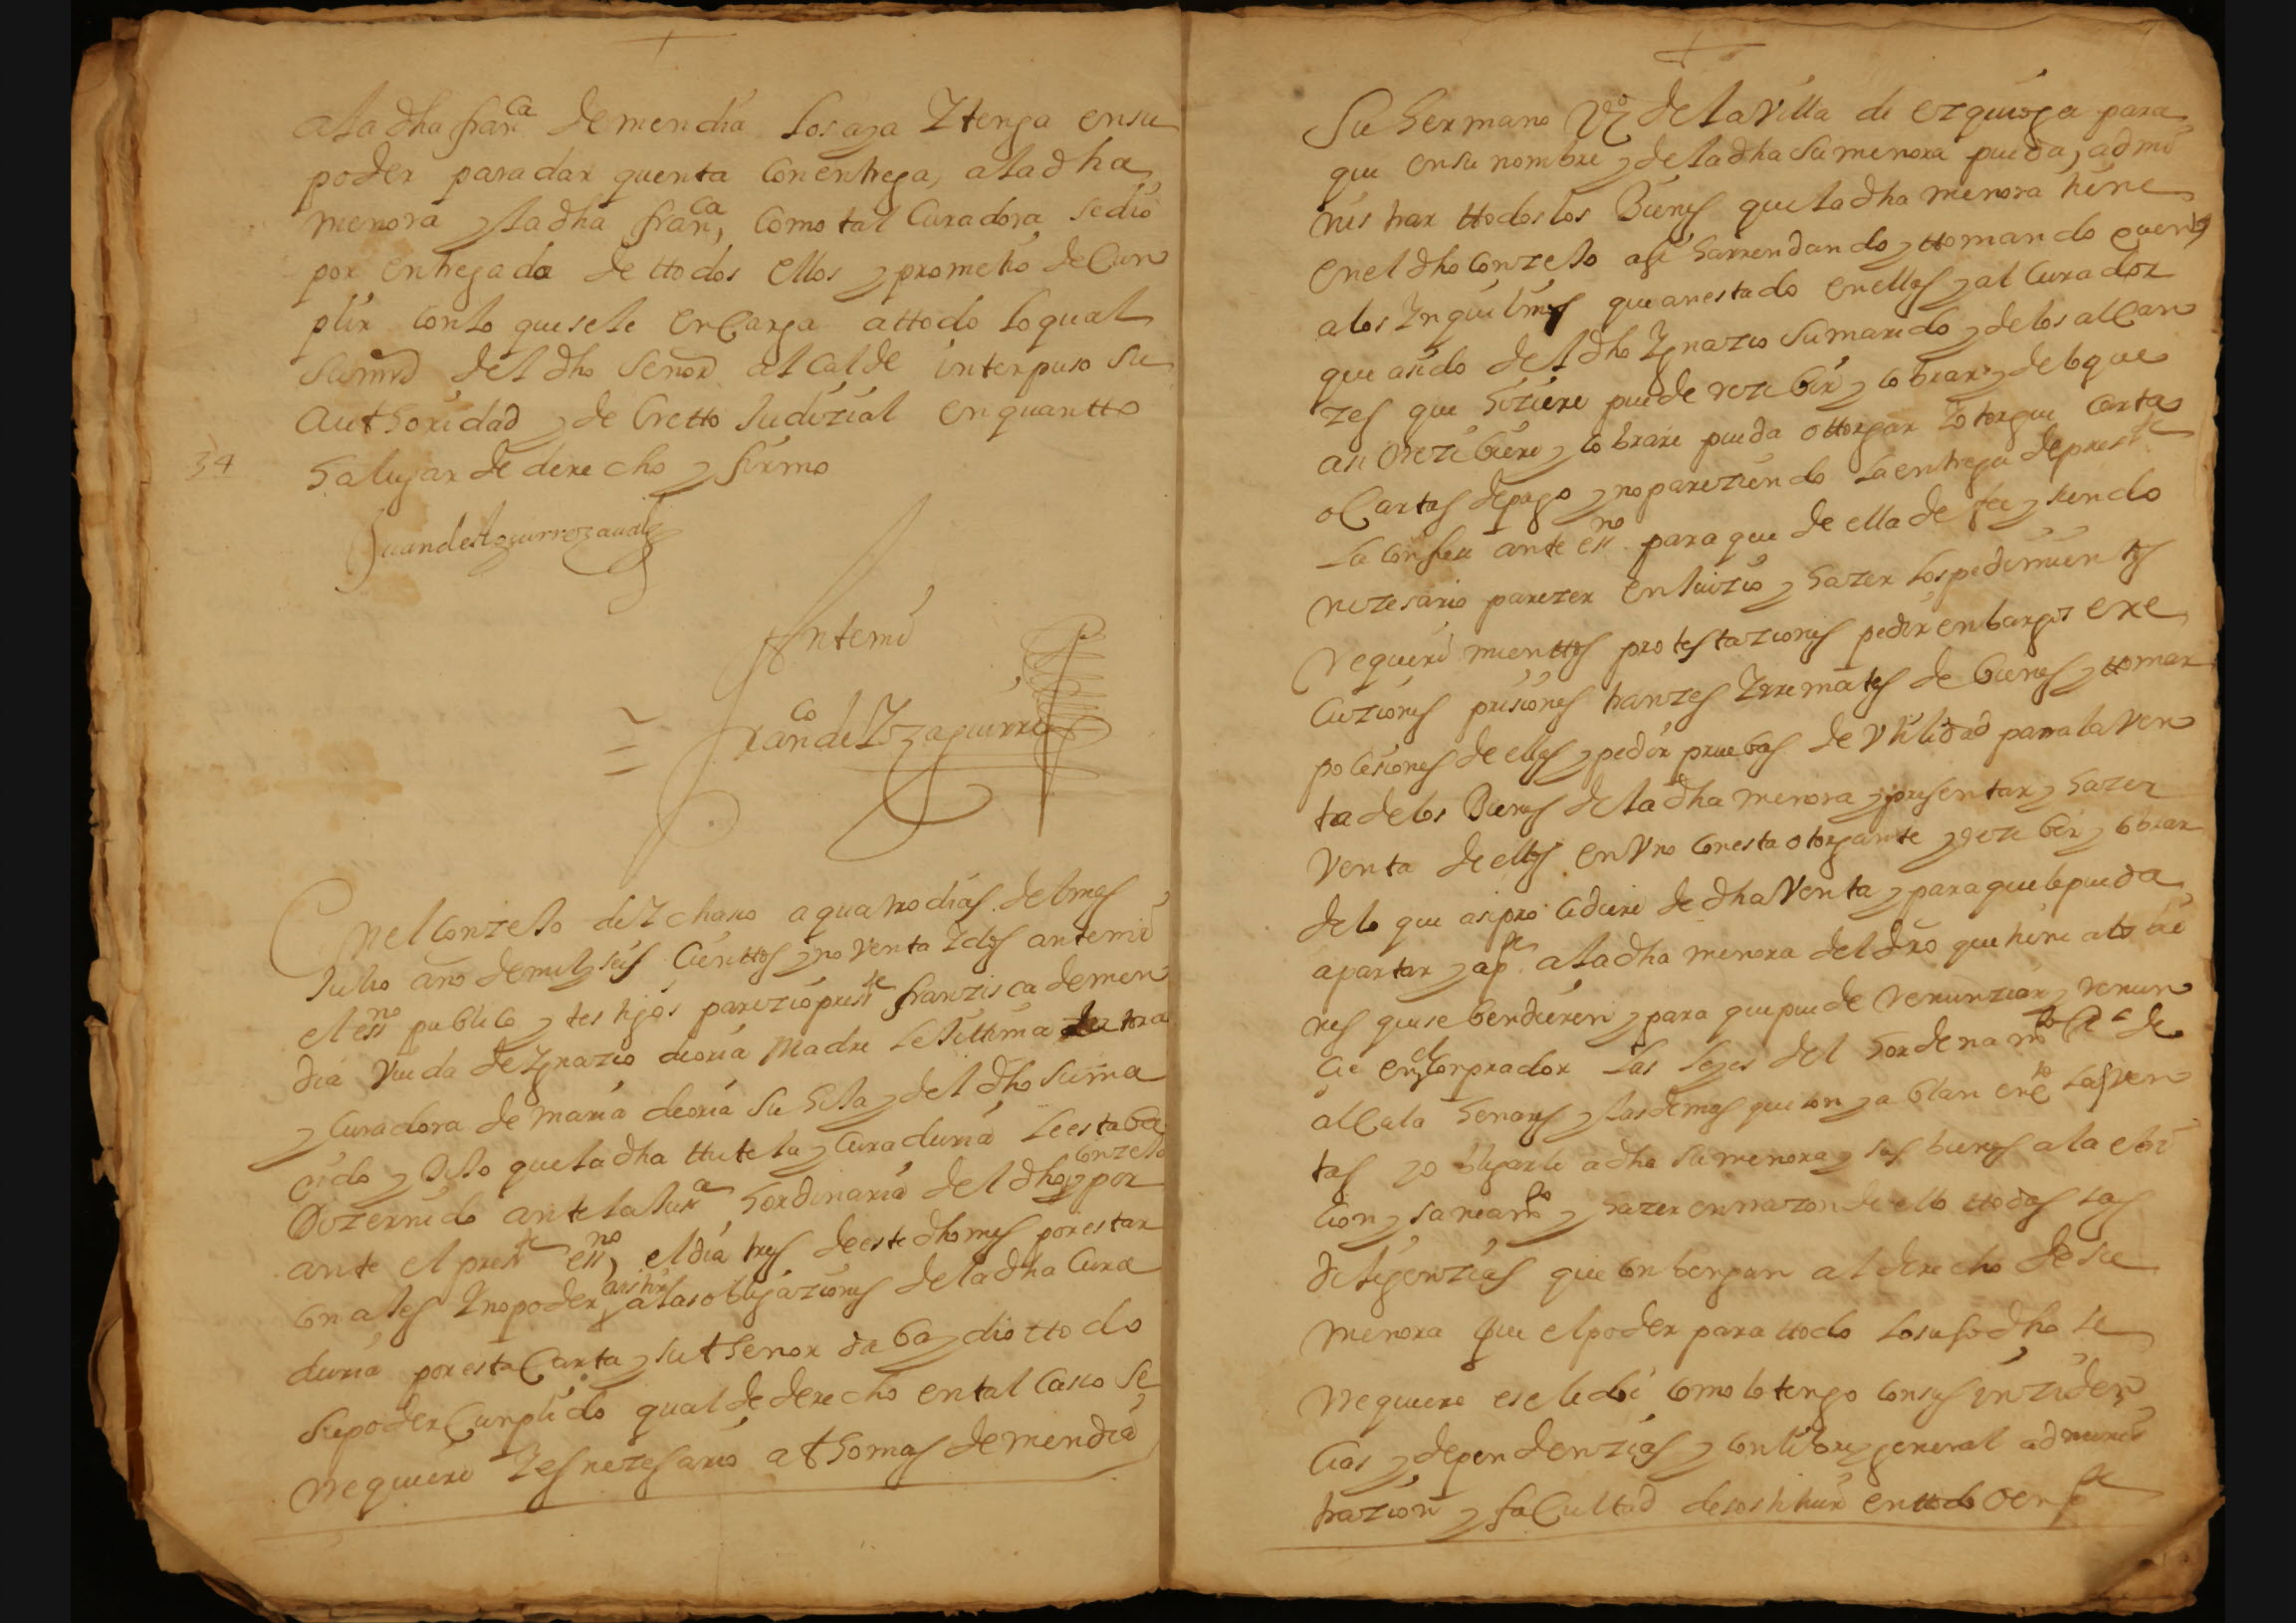 a la dha fran^ca de mendia los aya Y tenga en su
poder para dar quenta con entrega, a la dha
menora y la dha fran^ca, como tal Curadora se dio
por entregada de ttodos ellos y prometio de Cun
plir con lo que se le encarga a ttodo lo qual
su mrd del dho señor alcalde interpuso su
authoridad y decretto Judizial en quantto
34
ha lugar de derecho y firmo
Ante mi
Fran^co de Yzaguirre
En el Conzejo de Ychaso a quatro dias del mes
Julio año de mil y seis Cienttos y nobenta Y dos ante mi
el ess^no publico y testigos parezio press^te franzisca de men
dia Viuda de Ygnazio de oria Madre lexittima tutora
y Curadora de maria de oria su hija y del dho su ma
rido y Dijo que la dha ttutela y Curaduria le estaba
Dizernido ante la Jus^a hordinaria del dho conzejo y por
ante el press^te ess^no, el dia tres de este dho mes por estar
con ajes Y no poder asistir a las obligaziones de la dha Cura
duria por esta Carta y su thenor daba y dio ttodo
su poder Cunplido qual de derecho en tal Caso se
rrequiere Y es nezesario a thomas de mendia
Su hermano Vz^o de la Villa de ezquioga para
que en su nombre y de la dha su menora pueda, admi
nistrar ttodos los Bienes que la dha menora tiene
en el dho conzejo asi harrendando y ttomando quentas
a los Ynquilinos que an estado en ellas y al Curador
que a sido del dho Ygnazio su marido y de los alcan
zes que hiziere puede rezibir y cobrar y de lo que
asi rrezibiere y cobrare pueda ottorgar Y otorgue Carta
o Cartas de pago y no pareziendo la entrega de press^te
la confiese ante ess^no para que de ella de fee y siendo
nezesario parezer en Juizio y hazer los pedimientos
rrequerimienttos protestaziones pedir enbargos exe
cuziones prisiones tranzes Y rremates de bienes y ttomar
posesiones de ellos y pedir pruebas de Vtilidad para la Ven
ta de los Bienes de la dha menora y presentar y hazer
Venta de ellos en Vno con esta otorgante y rrezibir y cobrar
de lo que asi prozediere de dha Venta y para que le pueda
apartar y ap^te a la dha menora del dro que tiene a los bie
nes que se bendieren y para que puede rrenunziar y renun
cie en el Conprador las leyes del hordenam^to R^l de
alcala henares y las demas que son y ablan en r^on las Ven
tas y obligarle a dha su menora y sus bienes a la ebi
cion y saneam^to y hazer en rrazon de ello ttodas las
diligenzias que conbengan al derecho de su
menora que el poder para ttodo lo susodho se
rrequiere ese le doi como lo tengo con sus inziden
cias y dependenzias y con libre y general adminis
trazion y facultad de sostituir en ttodo o en p^te